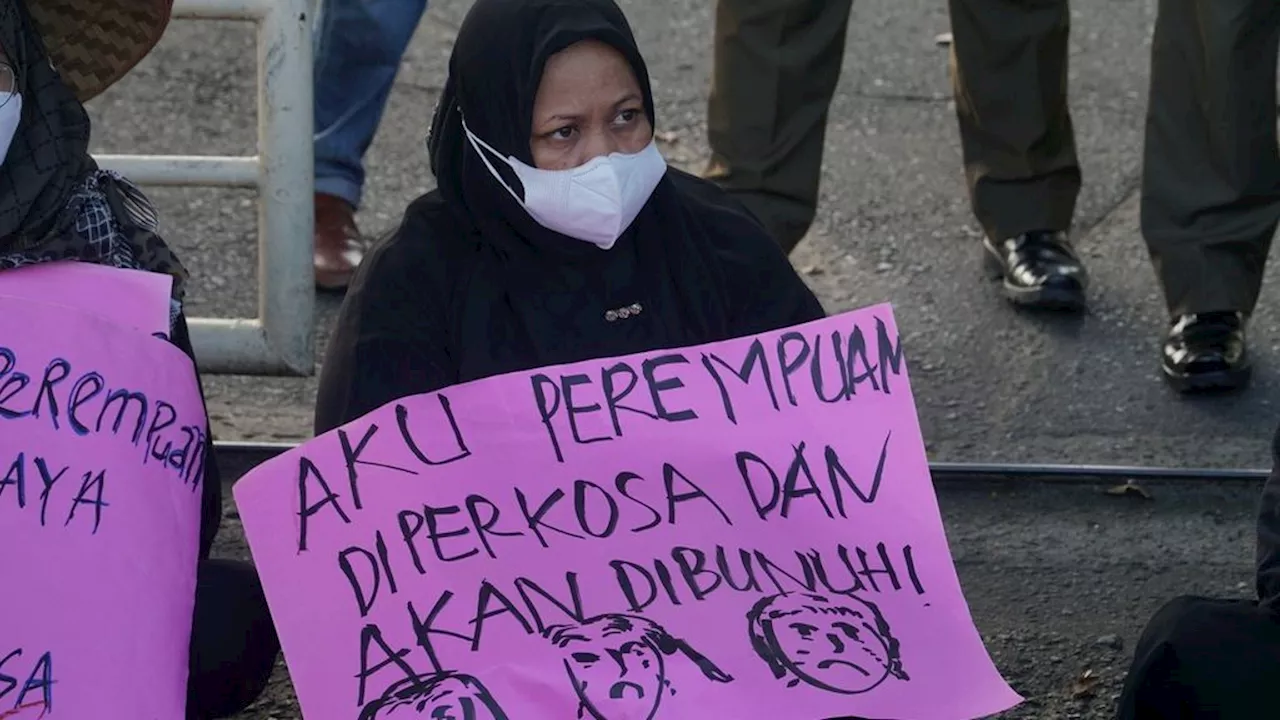 Perempuan
AYA
SA
AKU PEREMPUAN
DIPERKOSA DAN
AKAN DIBUNUH!
AKAN